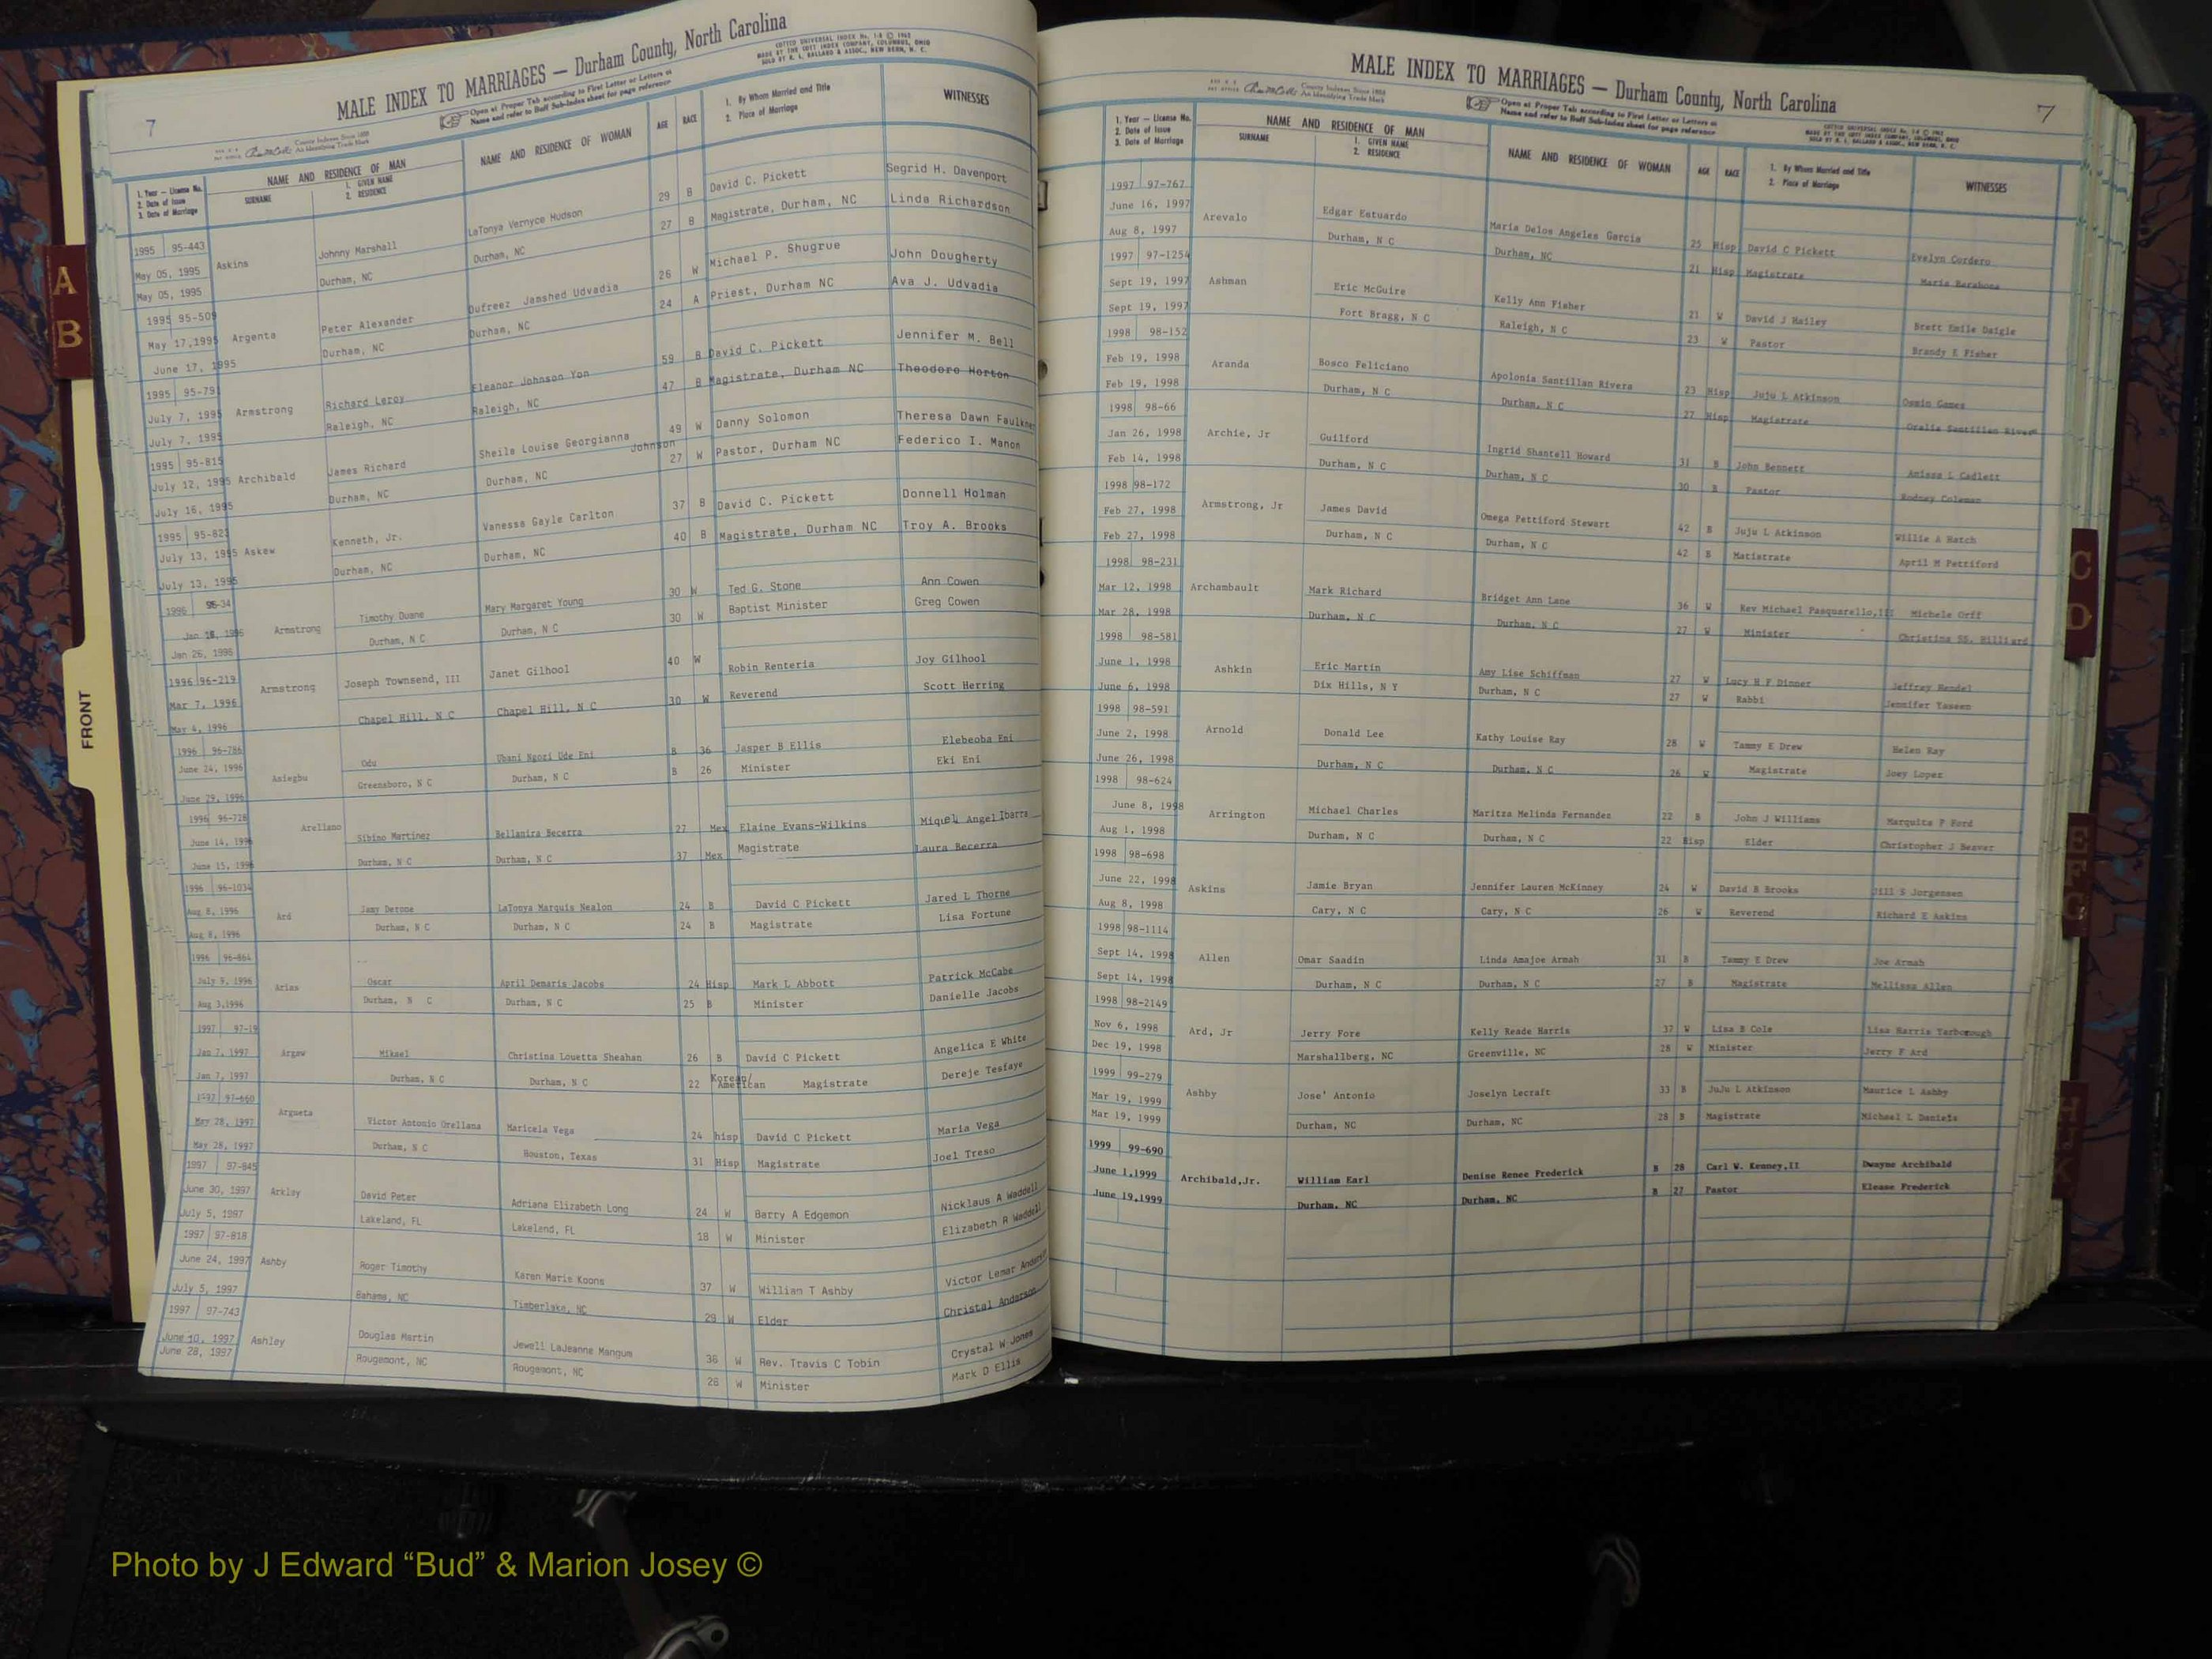 7
MALE INDEX TO MARRIAGES — Durham County, North Carolina
COTTCO UNIVERSAL INDEX No. 1-8 © 1962
MADE BY THE COTT INDEX COMPANY, COLUMBUS, OHIO
SOLD BY R. L. BALLARD & ASSOC., NEW BERN, N. C.
County Indexes Since 1888
An Identifying Trade Mark
Open at Proper Tab according to First Letter or Letters of
Name and refer to Buff Sub-Index sheet for page reference
1. Year — License No.
2. Date of Issue
3. Date of Marriage
NAME AND RESIDENCE OF MAN
SURNAME
1. GIVEN NAME
2. RESIDENCE
NAME AND RESIDENCE OF WOMAN
AGE
RACE
1. By Whom Married and Title
2. Place of Marriage
WITNESSES
1995 95-443 Askins Johnny Marshall LaTonya Vernyce Hudson 29 B David C. Pickett Segrid H. Davenport
May 05, 1995 Durham, NC Durham, NC 27 B Magistrate, Durham, NC Linda Richardson
May 05, 1995
1995 95-509 Argenta Peter Alexander Dufreez Jamshed Udvadia 26 W Michael P. Shugrue John Dougherty
May 17,1995 Durham, NC Durham, NC 24 A Priest, Durham NC Ava J. Udvadia
June 17, 1995
1995 95-791 Armstrong Richard Leroy Eleanor Johnson Yon 59 B David C. Pickett Jennifer M. Bell
July 7, 1995 Raleigh, NC Raleigh, NC 47 B Magistrate, Durham NC Theodore Horton
July 7, 1995
1995 95-815 Archibald James Richard Sheila Louise Georgianna Johnson 49 W Danny Solomon Theresa Dawn Faulkner
July 12, 1995 Durham, NC Durham, NC 27 W Pastor, Durham NC Federico I. Manon
July 16, 1995
1995 95-823 Askew Kenneth, Jr. Vanessa Gayle Carlton 37 B David C. Pickett Donnell Holman
July 13, 1995 Durham, NC Durham, NC 40 B Magistrate, Durham NC Troy A. Brooks
July 13, 1995
1996 96-34 Armstrong Timothy Duane Mary Margaret Young 30 W Ted G. Stone Ann Cowen
Durham, N C Durham, N C 30 W Baptist Minister Greg Cowen
Jan 26, 1996
1996 96-219 Armstrong Joseph Townsend, III Janet Gilhool 40 W Robin Renteria Joy Gilhool
Mar 7, 1996 Chapel Hill, N C Chapel Hill, N C 30 W Reverend Scott Herring
May 4, 1996
1996 96-786 Asiegbu Odu Ubani Ngozi Ude Eni B 36 Jasper B Ellis Elebeoba Eni
June 24, 1996 Greensboro, N C Durham, N C B 26 Minister Eki Eni
June 29, 1996
1996 96-728 Arellano Sibino Martinez Bellanira Becerra 27 Mex Elaine Evans-Wilkins Miquel Angel Ibarra
June 14, 1996 Durham, N C Durham, N C 37 Mex Magistrate Laura Becerra
June 15, 1996
1996 96-1034 Ard Jamy Derone LaTonya Marquis Nealon 24 B David C Pickett Jared L Thorne
Aug 8, 1996 Durham, N C Durham, N C 24 B Magistrate Lisa Fortune
Aug 8, 1996
1996 96-864 Arias Oscar April Demaris Jacobs 24 Hisp Mark L Abbott Patrick McCabe
July 9, 1996 Durham, N C Durham, N C 25 B Minister Danielle Jacobs
Aug 3,1996
1997 97-19 Argaw Mikael Christina Louetta Sheahan 26 B David C Pickett Angelica E White
Jan 7, 1997 Durham, N C Durham, N C 22 Korean/American Magistrate Dereje Tesfaye
Jan 7, 1997
1997 97-660 Argueta Victor Antonio Orellana Maricela Vega 24 hisp David C Pickett Maria Vega
May 28, 1997 Durham, N C Houston, Texas 31 Hisp Magistrate Joel Treso
May 28, 1997
1997 97-845 Arkley David Peter Adriane Elizabeth Long 24 W Barry A Edgemon Nicklaus A Waddell
June 30, 1997 Lakeland, FL Lakeland, FL 18 W Minister Elizabeth R Waddell
July 5, 1997
1997 97-818 Ashby Roger Timothy Karen Marie Koons 37 W William T Ashby Victor Lemar Anderson
June 24, 1997 Bahama, NC Timberlake, NC 29 W Elder Christal Anderson
July 5, 1997
1997 97-743 Ashley Douglas Martin Jewell LaJeanne Mangum 36 W Rev. Travis C Tobin Crystal W Jones
June 10, 1997 Rougemont, NC Rougemont, NC 28 W Minister Mark D Ellis
June 28, 1997
A
B
FRONT
MALE INDEX TO MARRIAGES — Durham County, North Carolina
7
County Indexes Since 1888
An Identifying Trade Mark
Open at Proper Tab according to First Letter or Letters of
Name and refer to Buff Sub-Index sheet for page reference
COTTCO UNIVERSAL INDEX No. 1-8 © 1962
MADE BY THE COTT INDEX COMPANY, COLUMBUS, OHIO
SOLD BY R. L. BALLARD & ASSOC., NEW BERN, N. C.
1. Year — License No.
2. Date of Issue
3. Date of Marriage
NAME AND RESIDENCE OF MAN
SURNAME
1. GIVEN NAME
2. RESIDENCE
NAME AND RESIDENCE OF WOMAN
AGE
RACE
1. By Whom Married and Title
2. Place of Marriage
WITNESSES
1997 97-767 Arevalo Edgar Estuardo Maria Delos Angeles Garcia 25 Hisp David C Pickett Evelyn Cordero
June 16, 1997 Durham, N C Durham, NC 21 Hisp Magistrate Maria Barahona
Aug 8, 1997
1997 97-1254 Ashman Eric McGuire Kelly Ann Fisher 21 W David J Hailey Brett Emile Daigle
Sept 19, 1997 Fort Bragg, N C Raleigh, N C 23 W Pastor Brandy E Fisher
Sept 19, 1997
1998 98-152 Aranda Bosco Feliciano Apolonia Santillan Rivera 23 Hisp Juju L Atkinson Osmin Games
Feb 19, 1998 Durham, N C Durham, N C 27 Hisp Magistrate Oralia Santillan Rivera
Feb 19, 1998
1998 98-66 Archie, Jr Guilford Ingrid Shantell Howard 31 B John Bennett Anissa L Cadlett
Jan 26, 1998 Durham, N C Durham, N C 30 B Pastor Rodney Coleman
Feb 14, 1998
1998 98-172 Armstrong, Jr James David Omega Pettiford Stewart 42 B Juju L Atkinson Willie A Hatch
Feb 27, 1998 Durham, N C Durham, N C 42 B Matistrate April M Pettiford
Feb 27, 1998
1998 98-231 Archambault Mark Richard Bridget Ann Lane 36 W Rev Michael Pasquarello,III Michele Orff
Mar 12, 1998 Durham, N C Durham, N C 27 W Minister Christina SS. Hilliard
Mar 28, 1998
1998 98-581 Ashkin Eric Martin Amy Lise Schiffman 27 W Lucy H F Dinner Jeffrey Hendel
June 1, 1998 Dix Hills, N Y Durham, N C 27 W Rabbi Jennifer Yaseen
June 6, 1998
1998 98-591 Arnold Donald Lee Kathy Louise Ray 28 W Tammy E Drew Helen Ray
June 2, 1998 Durham, N C Durham, N C 26 W Magistrate Joey Lopez
June 26, 1998
1998 98-624 Arrington Michael Charles Maritza Melinda Fernandez 22 B John J Williams Marquita P Ford
June 8, 1998 Durham, N C Durham, N C 22 Hisp Elder Christopher J Beaver
Aug 1, 1998
1998 98-698 Askins Jamie Bryan Jennifer Lauren McKinney 24 W David B Brooks Jill S Jorgensen
June 22, 1998 Cary, N C Cary, N C 26 W Reverend Richard E Askins
Aug 8, 1998
1998 98-1114 Allen Omar Saadin Linda Amajoe Armah 31 B Tammy E Drew Joe Armah
Sept 14, 1998 Durham, N C Durham, N C 27 B Magistrate Mellissa Allen
Sept 14, 1998
1998 98-2149 Ard, Jr Jerry Fore Kelly Reade Harris 37 W Lisa B Cole Lisa Harris Yarborough
Nov 6, 1998 Marshallberg, NC Greenville, NC 28 W Minister Jerry F Ard
Dec 19, 1998
1999 99-279 Ashby Jose' Antonio Joselyn Lecraft 33 B JuJu L Atkinson Maurice L Ashby
Mar 19, 1999 Durham, NC Durham, NC 28 B Magistrate Michael L Daniels
Mar 19, 1999
1999 99-690 Archibald,Jr. William Earl Denise Renee Frederick B 28 Carl W. Kenney,II Dwayne Archibald
June 1,1999 Durham, NC Durham, NC B 27 Pastor Elease Frederick
June 19,1999
C
D
Photo by J Edward “Bud” & Marion Josey ©